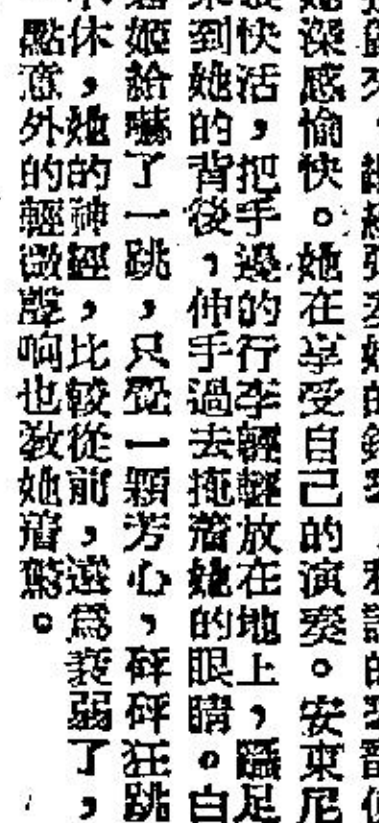 深感愉快。她在享受自己的演奏。安東尼
快活,把手邊的行李輕輕放在地上,躡足
到她的背後,伸手過去掩著她的眼睛。白
姬給嚇了一跳,只覺一顆芳心,砰砰狂跳
休,她的神經,比較從前,遠爲衰弱了,
點意外的輕微聲响也教她著驚。